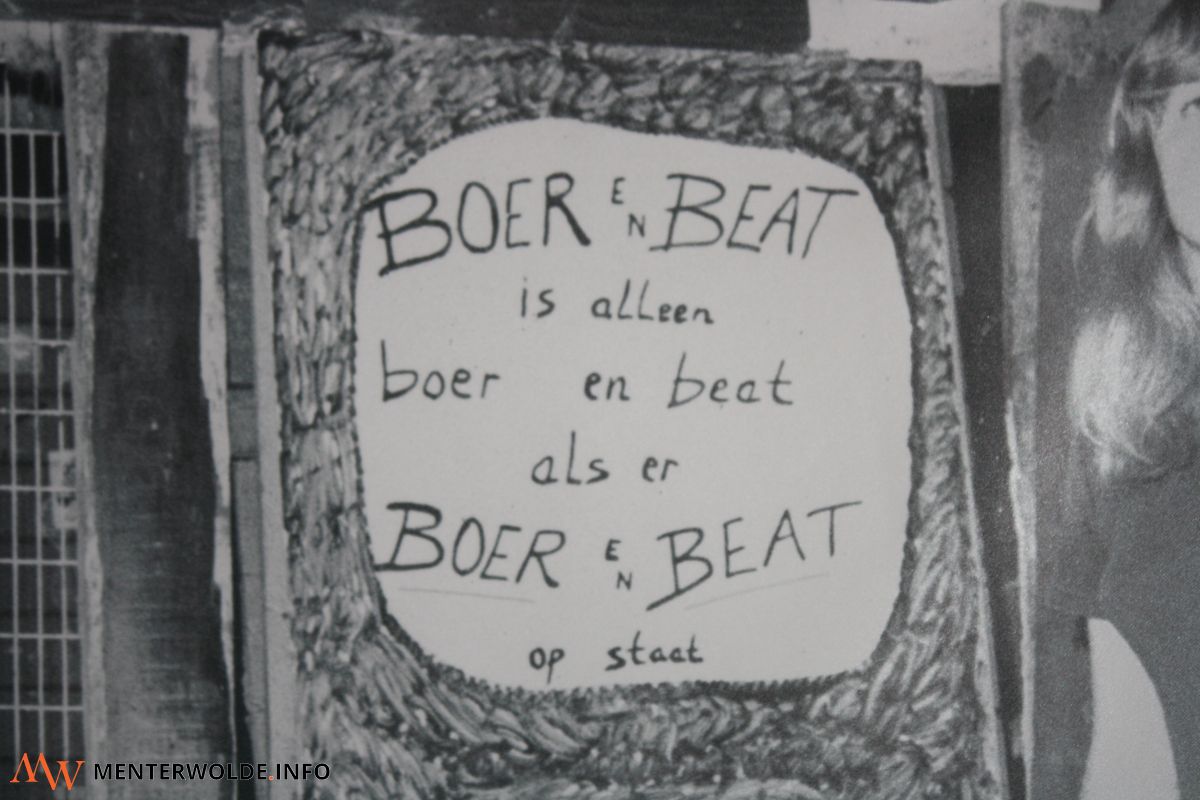 BOER EN BEAT
is alleen
boer en beat
als er
BOER EN BEAT
op staat
MW MENTERWOLDE.INFO